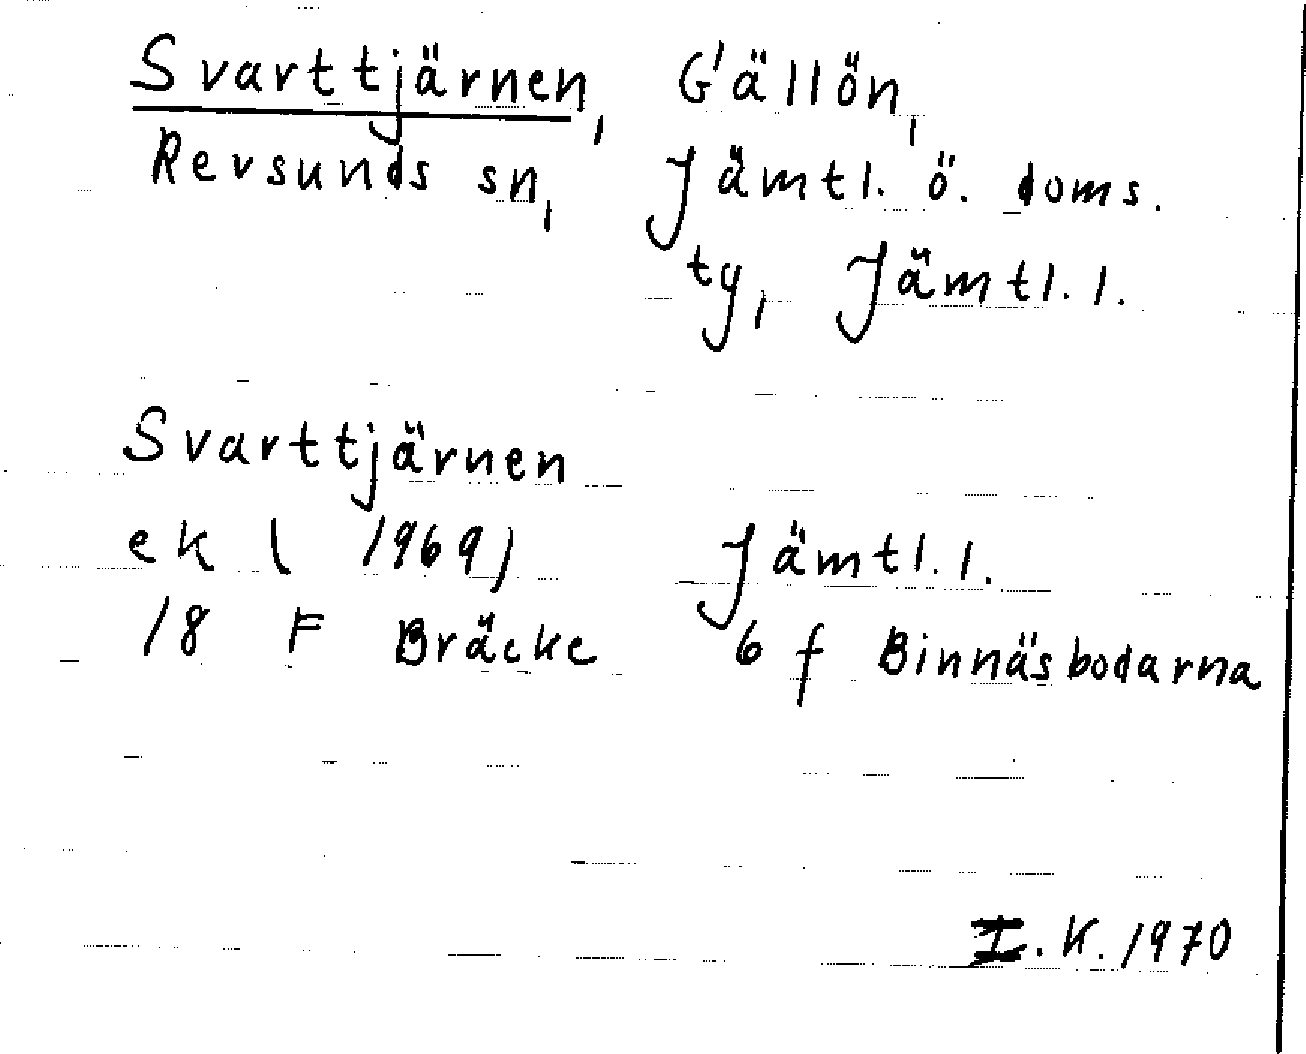 Svarttjärnen, Gällön,
Revsunds sn, Jämtl. ö. doms.
ty, Jämtl. l.
Svarttjärnen
ek ( 1969) Jämtl. l.
18 F Bräcke 6 f Binnäsbodarna
I.K. 1970